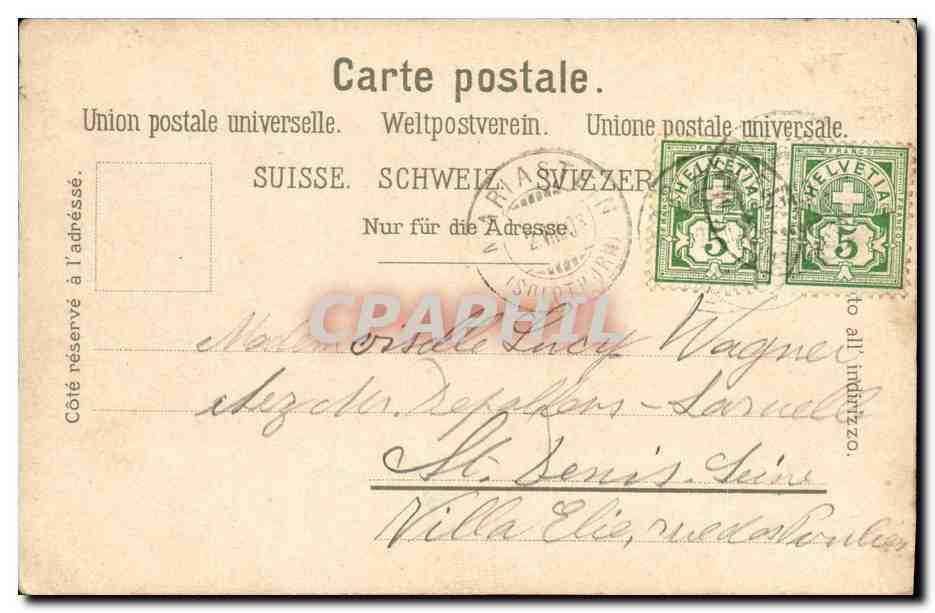 Carte postale.
Union postale universelle. Weltpostverein. Unione postale universale.
SUISSE. SCHWEIZ. SVIZZER
Nur für die Adresse.
Côté réservé à l'adresse.
to all' indirizzo.
MARIASTEIN
(SOLOTHURN)
FRANCO HELVETIA 5
FRANCO HELVETIA 5
CPAPHIL
Mademoiselle Lucy Wagner
chez Mr.
St. Denis. Seine
Villa Elie, rue des